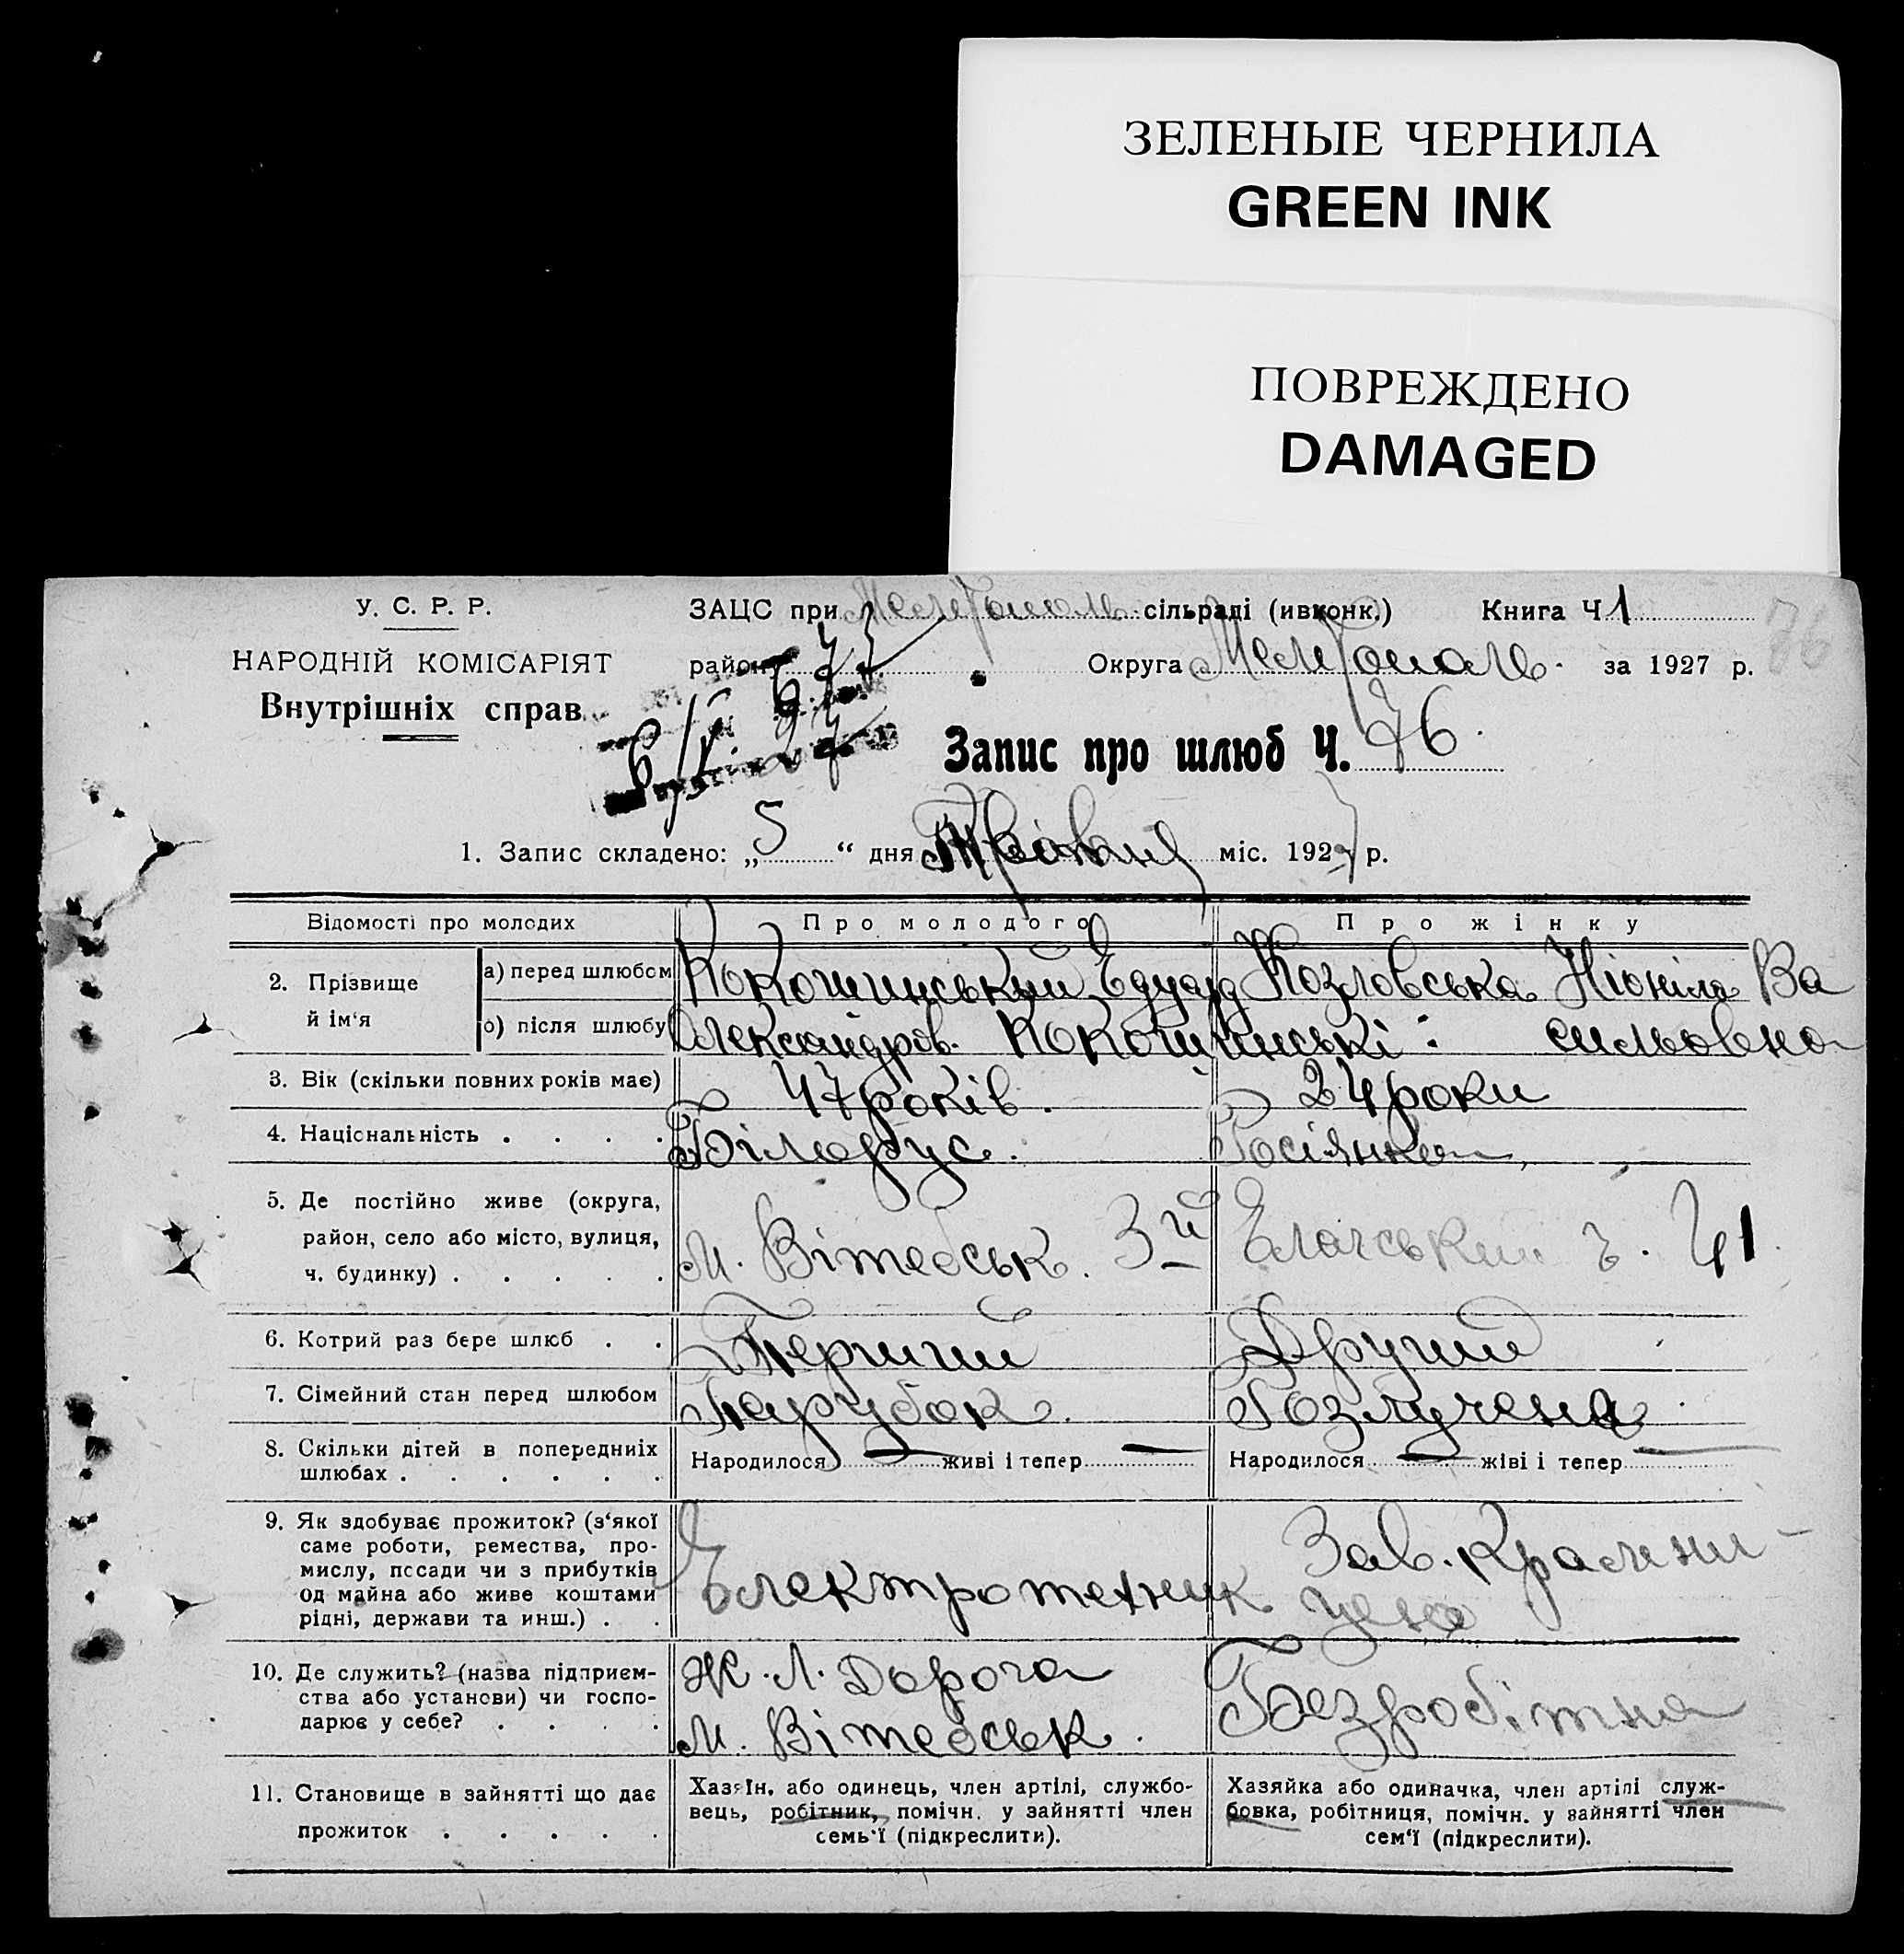 ЗЕЛЕНЫЕ ЧЕРНИЛА
GREEN INK
ПОВРЕЖДЕНО
DAMAGED
У. С. Р. Р.
НАРОДНІЙ КОМІСАРІЯТ
Внутрішніх справ
ЗАЦС при Мелітополь сільраді (ивконк.) Книга Ч 1
76
район Округа Мелітополь за 1927 р.
Запис про шлюб Ч. 76.
1. Запис складено: „ 5 “ дня Травня міс. 1927 р.
Відомості про молодих
Про молодого
Про жінку
2. Прізвище й ім'я
а) перед шлюбом
Кокошинський Едуард
Козловська Ніоніла Ва
о) після шлюбу
Александров. Кокошинські: сильовна
3. Вік (скільки повних років має)
47 років.
24 роки
4. Національність . . . .
Білорус.
Росіянка
5. Де постійно живе (округа,
район, село або місто, вулиця,
ч. будинку) . . . . .
м. Вітебськ. 3й
41
6. Котрий раз бере шлюб . .
Перший
Другий
7. Сімейний стан перед шлюбом
Парубок.
Розлучена
8. Скільки дітей в попередниіх
шлюбах . . . . . .
Народилося — живі і тепер —
Народилося — жіві і тепер —
9. Як здобуває прожиток? (з'якої
саме роботи, ремества, про-
мислу, посади чи з прибутків
од майна або живе коштами
рідні, держави та инш.) . .
Електротехник
Зав.
10. Де служить? (назва підприєм-
ства або установи) чи госпо-
дарює у себе? . . . .
Ж. Л. Дорога
м. Вітебськ.
Безробітна
11. Становище в зайнятті що дає
прожиток . . . . .
Хазяїн, або одинець, член артілі, службо-
вець, робітник, помічн. у зайнятті член
семь'ї (підкреслити).
Хазяйка або одиначка, член артілі служ-
бовка, робітниця, помічн. у зайнятті член
сем'ї (підкреслити).